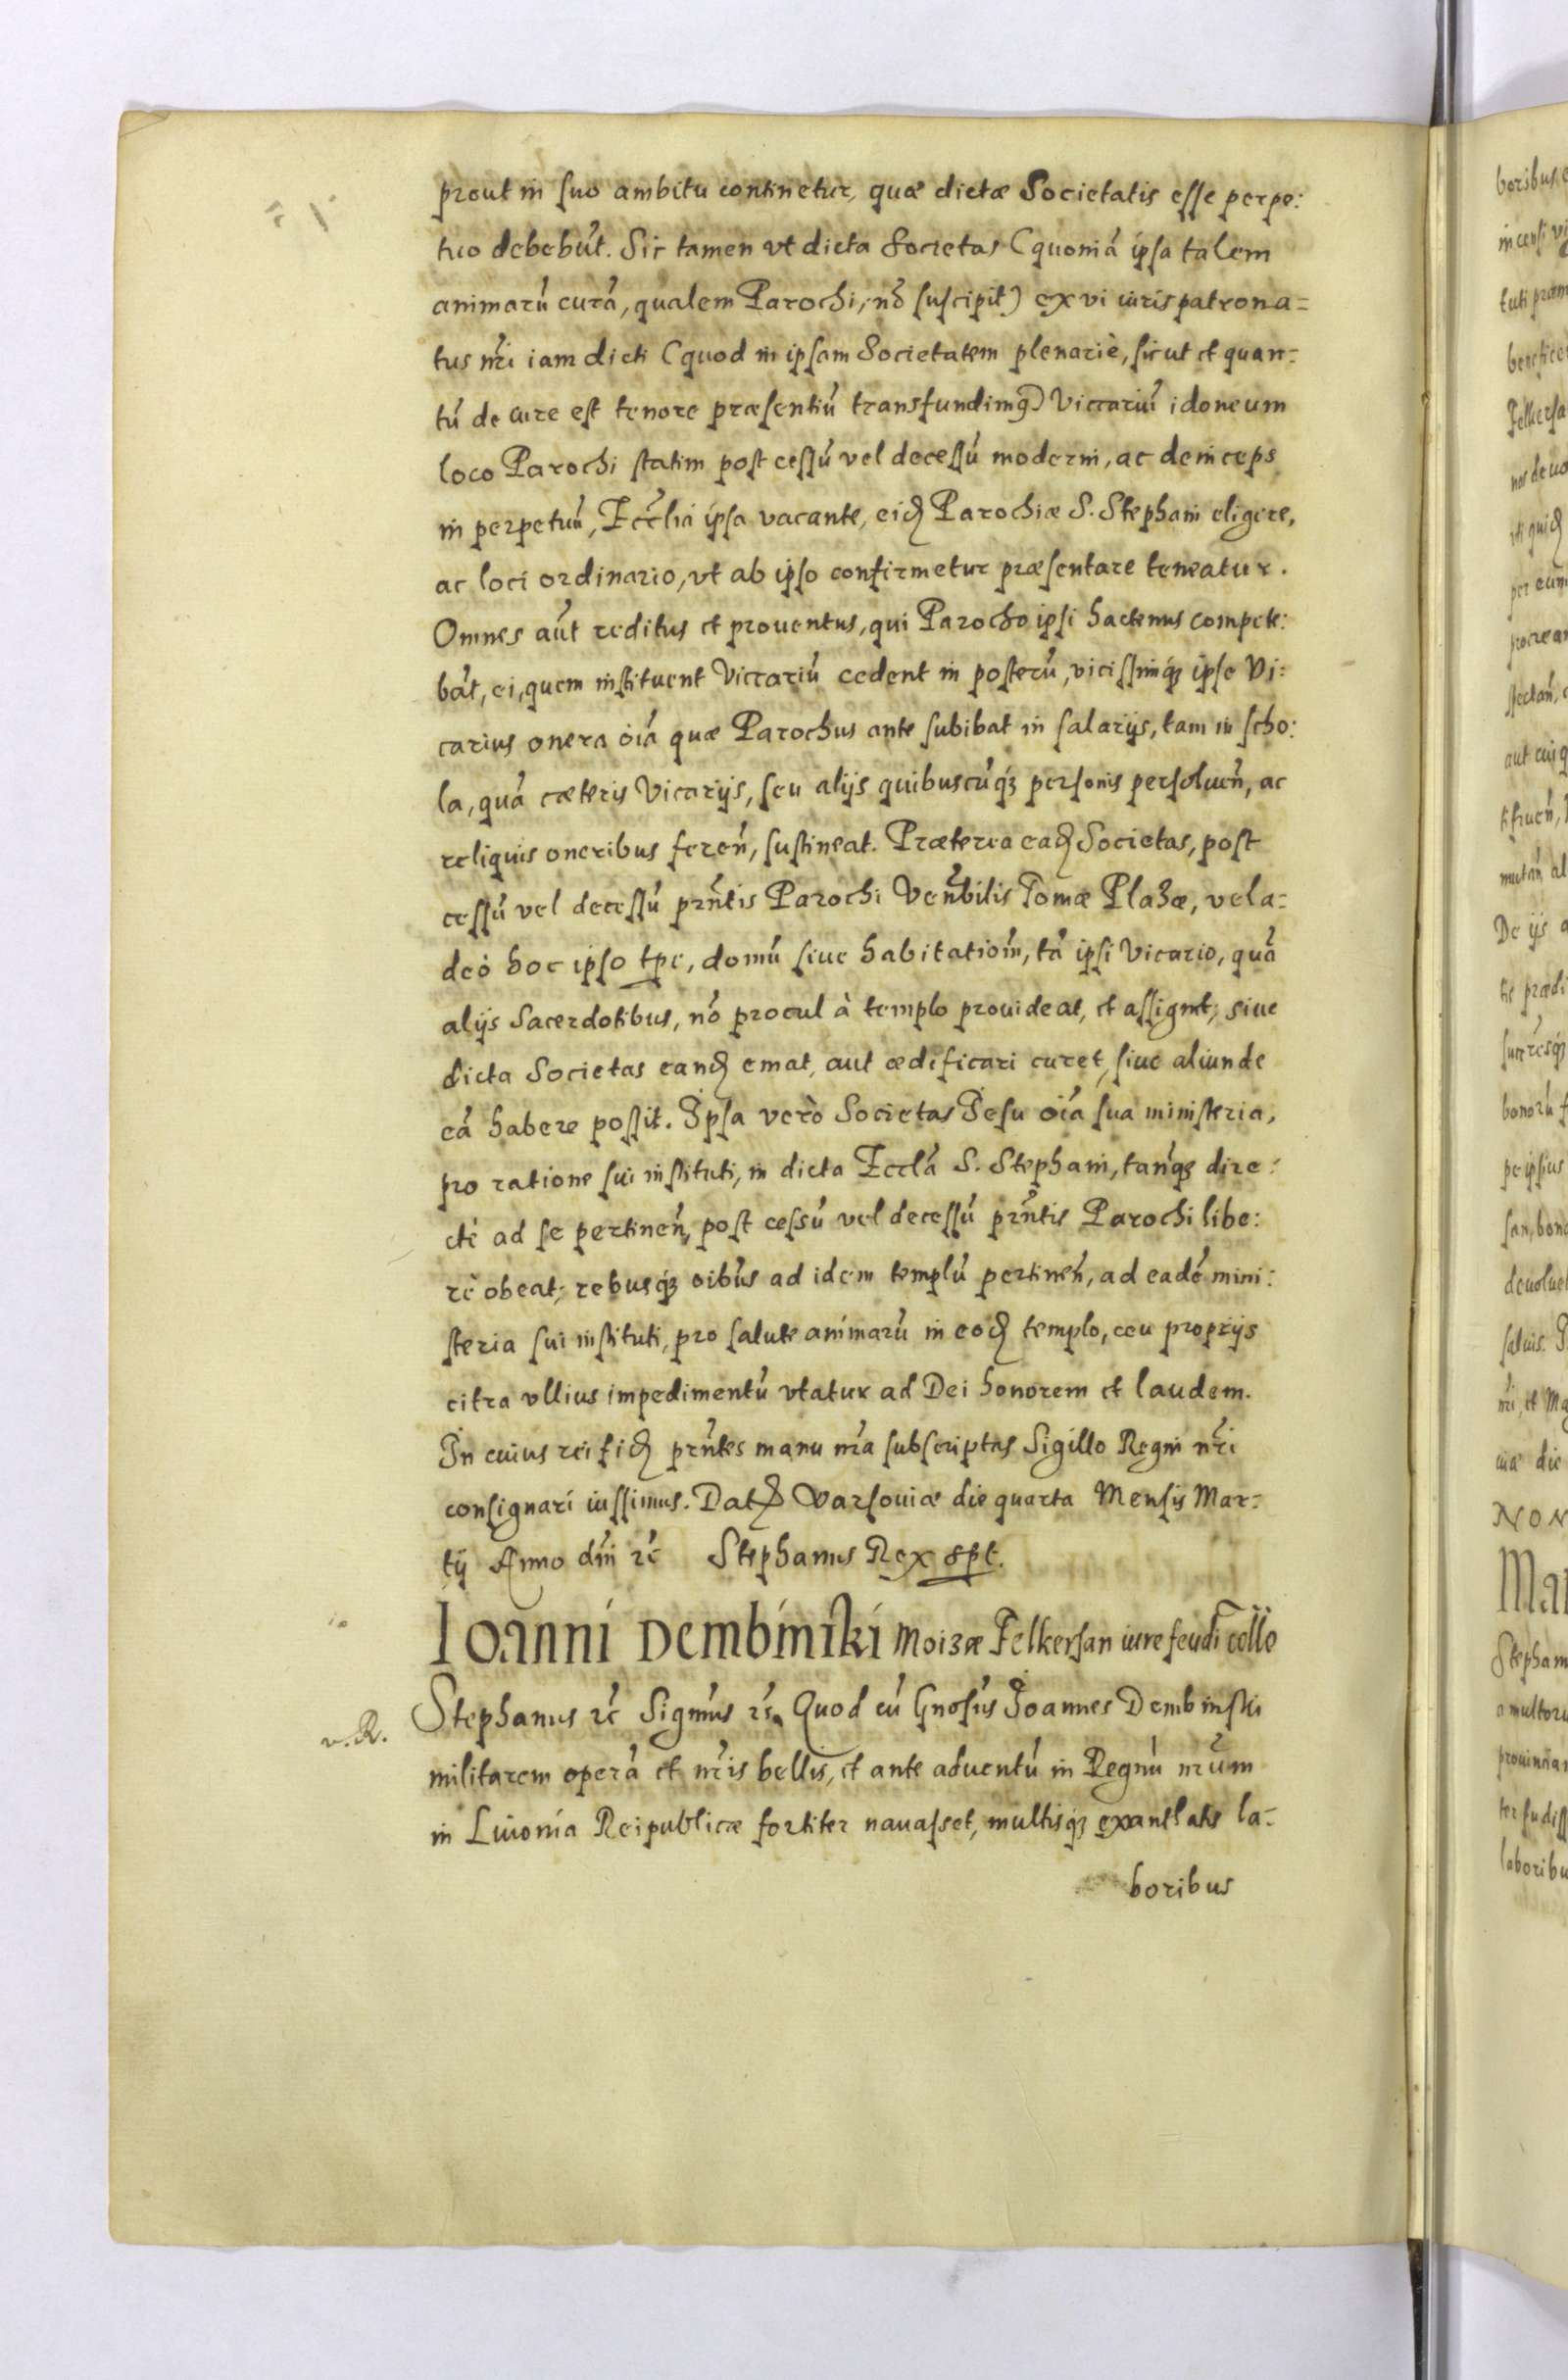 prout in suo ambitu continetur, quæ dictæ Societatis esse perpe:
tuo debebūt. Sic tamen vt dicta Societas (quoniā ipsa talem
animarū curā, qualem Parochi, nō suscipit) ex vi iuris patrona=
tus nr̄i iam dicti (quod in ipsam Societatem plenariè, sicut et quan=
tū de iure est tenore præsentiū transfundimꝯ) Viccariū idoneum
loco Parochi statim post cessū vel decessū moderni, ac deinceps
in perpetuū, Eccl̄ia ipsa vacante, eidꝫ Parochiæ S. Stephani eligere,
ac loci ordinario, vt ab ipso confirmetur præsentare teneatur.
Omnes aūt reditus et prouentus, qui Parocho ipsi hactenus compete:
bāt, ei, quem instituent Viccariū cedent in posterū, vicissimqꝫ ipse Vi:
carius onera oīa quæ Parochus ante subibat in salarijs, tam in scho:
la, quā cæteris Vicarijs, seu alijs quibuscūqꝫ personis persoluen̄, ac
reliquis oneribus feren̄, sustineat. Præterea eadꝫ Societas, post
cessū vel decessū prn̄tis Parochi Ven̄bilis Tomæ Plazæ, vel a=
deò hoc ipso tp̄e, domū siue habitatiōm, tā ipsi Vicario, quā
alijs Sacerdotibus, nō procul à templo prouideat, et assignt; siue
dicta Societas eandꝫ emat, aut ædificari curet, siue aliunde
eā habere possit. Ipsa verò Societas Iesu oīa sua ministeria,
pro ratione sui instituti, in dicta Eccl̄a S. Stephani, tanq̄ꝫ dire:
ctè ad se pertinen̄, post cessū vel decessū prn̄tis Parochi libe:
rè obeat; rebusqꝫ oībus ad idem templū pertinen̄, ad eadē mini:
steria sui instituti, pro salute animarū in eodꝫ templo, ceu proprijs
citra vllius impedimentū vtatur ad Dei honorem et laudem.
In cuius rei fidꝫ prn̄tes manu nr̄a subscriptas Sigillo Regni nr̄i
consignari iussimus. Datꝫ Varsouiæ die quarta Mensis Mar=
tij Anno dn̄i ꝛc̄ Stephanus Rex spt.
Ioanni Dembinski Moizæ Felkersan iure feudi colло
v.R. Stephanus ꝛc̄ Significamꝰ ꝛc̄. Quod cū Gnosus Ioannes Dembinski
militarem operā et nr̄is bellis, et ante aduentū in Regnū nr̄um
in Liuonia Reipublicæ fortiter nauasset, multisqꝫ exantlatis la=
boribus